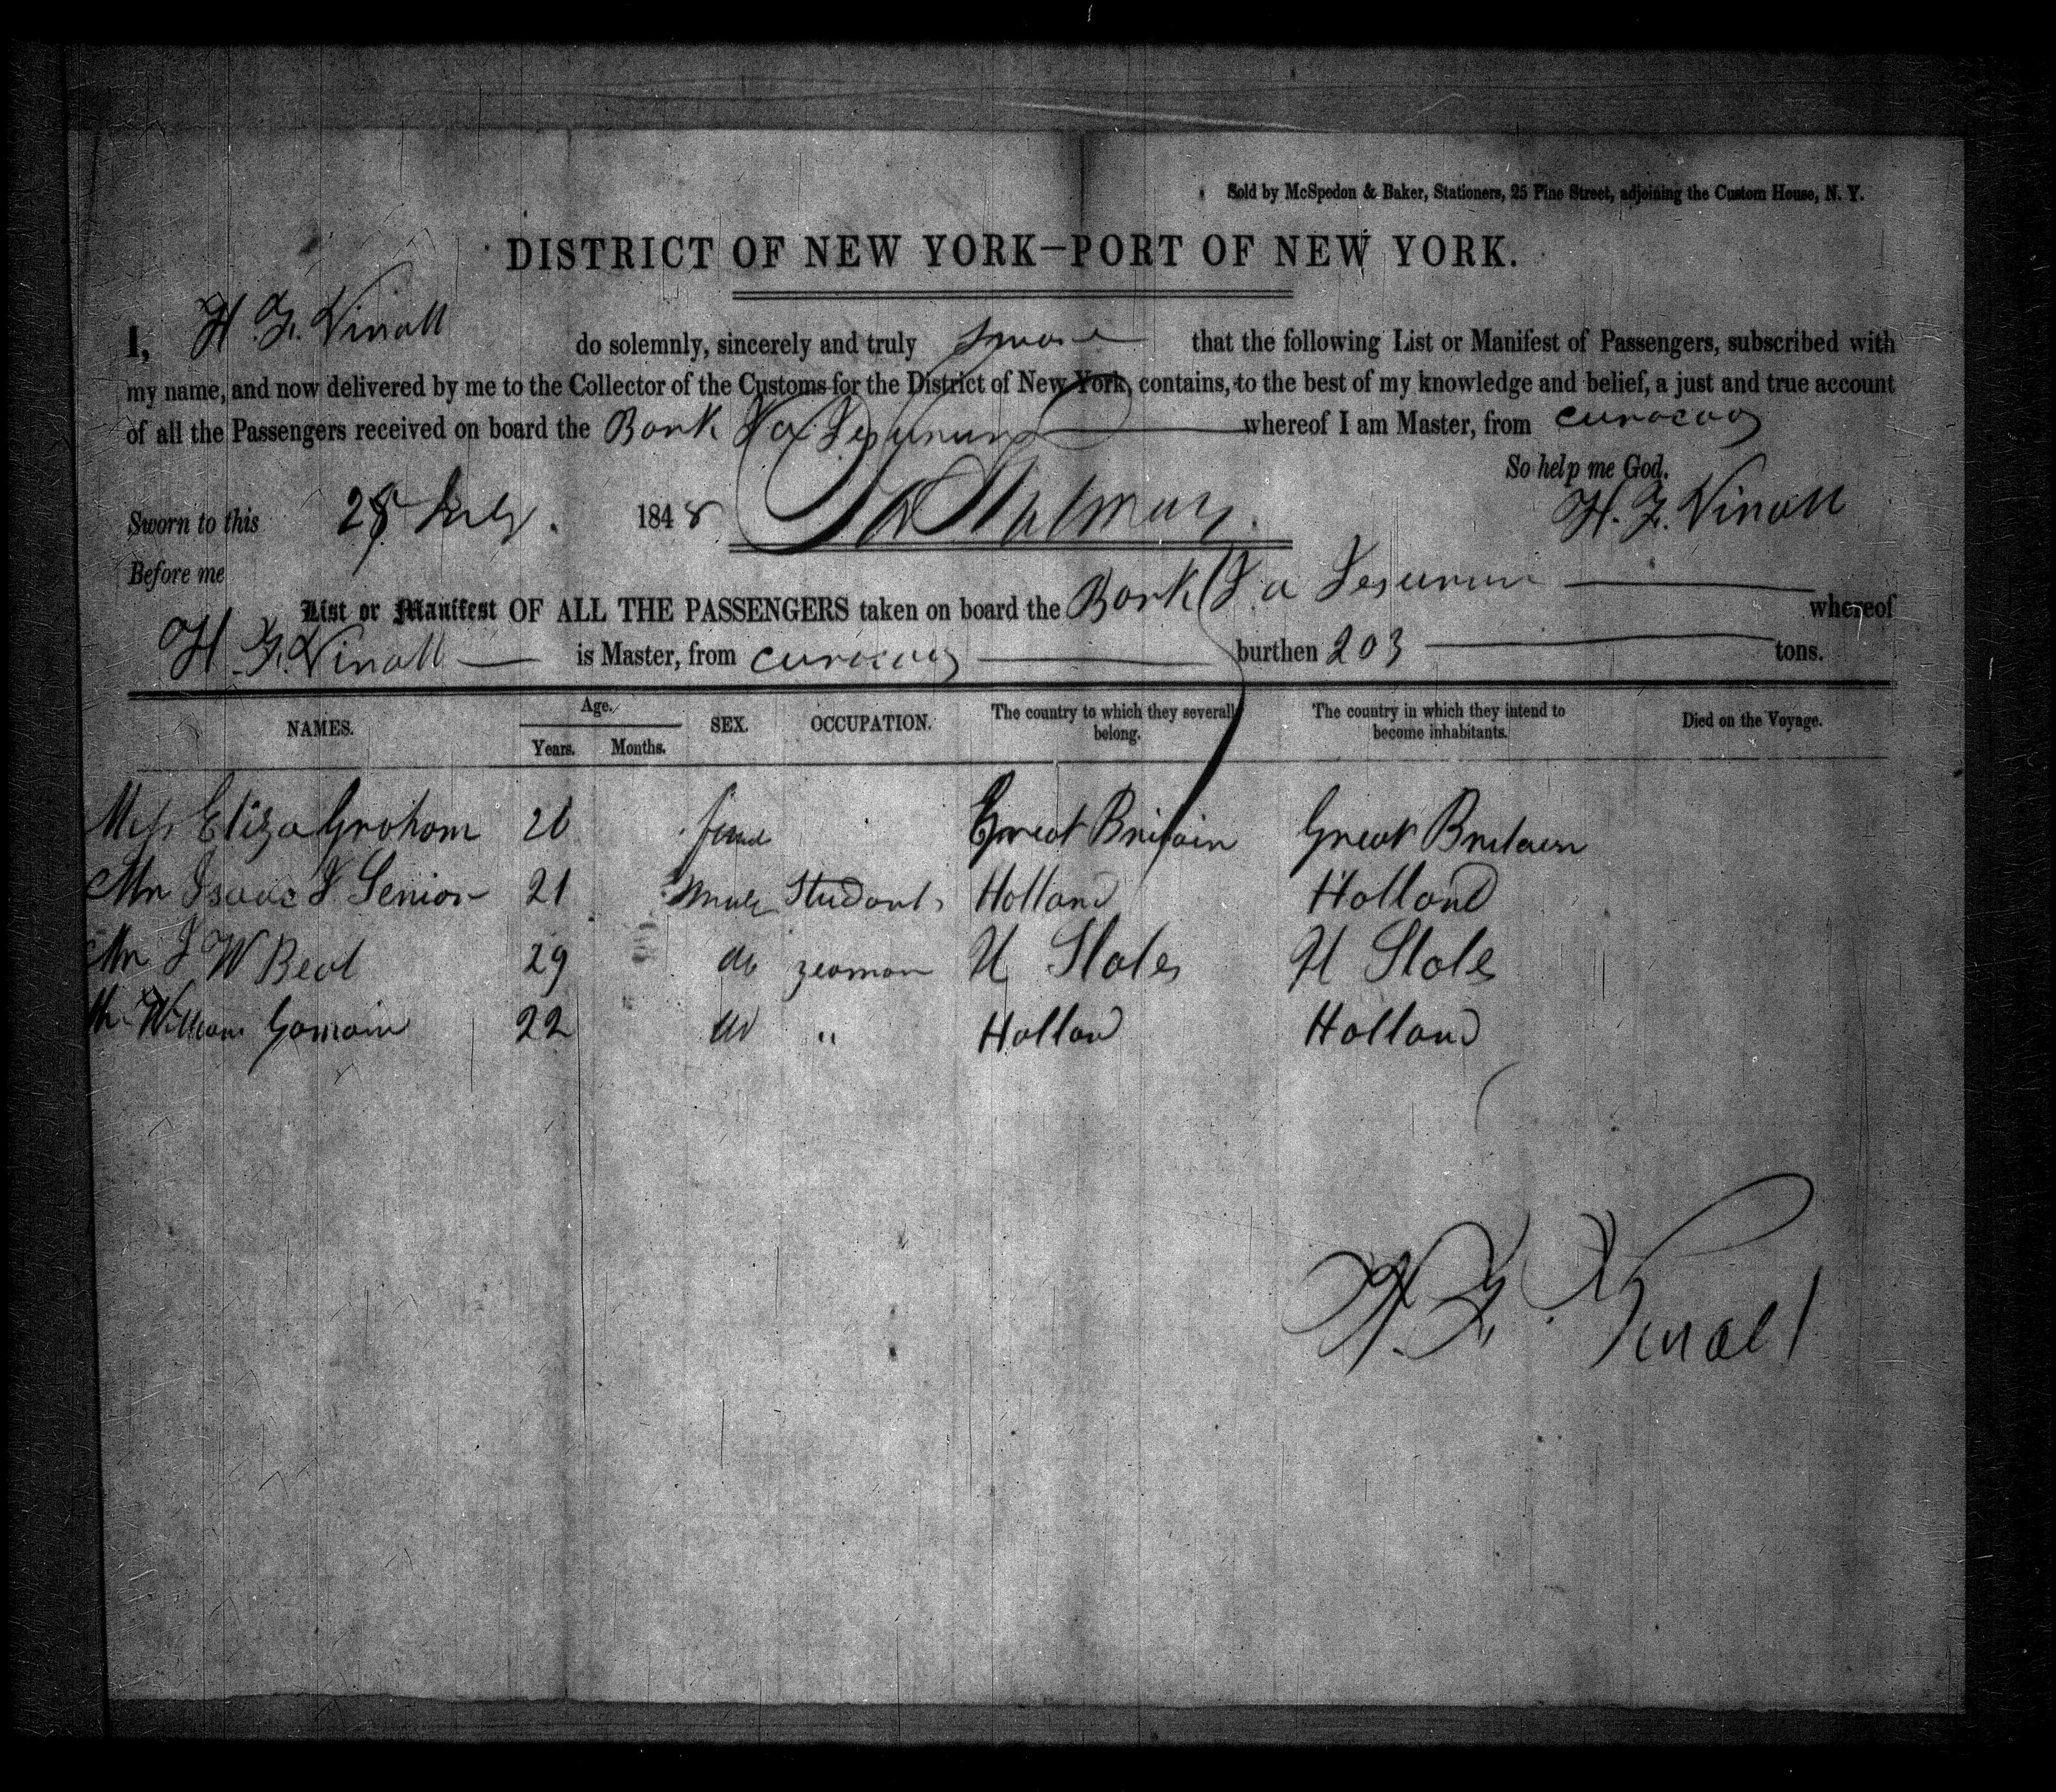 Sold by McSpedon & Baker, Stationers, 25 Pine Street, adjoining the Custom House, N. Y.
DISTRICT OF NEW YORK—PORT OF NEW YORK.
I, H. F. Vinall do solemnly, sincerely and truly swear that the following List or Manifest of Passengers, subscribed with
my name, and now delivered by me to the Collector of the Customs for the District of New York, contains, to the best of my knowledge and belief, a just and true account
of all the Passengers received on board the Bark J a Jesurun whereof I am Master, from curacoa
So help me God.
Sworn to this 28 July 1848 H. F. Vinall
Before me
List or Manifest OF ALL THE PASSENGERS taken on board the Bark J. a Jesurun whereof
H. F. Vinall is Master, from curacoa burthen 203 tons.
NAMES. Age. Years. Months. SEX. OCCUPATION. The country to which they severally belong. The country in which they intend to become inhabitants. Died on the Voyage.
Miss Eliza Graham 26 female Great Britain Great Britain
Mr Isaac J Senior 21 male Student Holland Holland
Mr J W Beal 29 do yeoman U States U States
Mr William 22 do " Holland Holland
H. F. Vinall